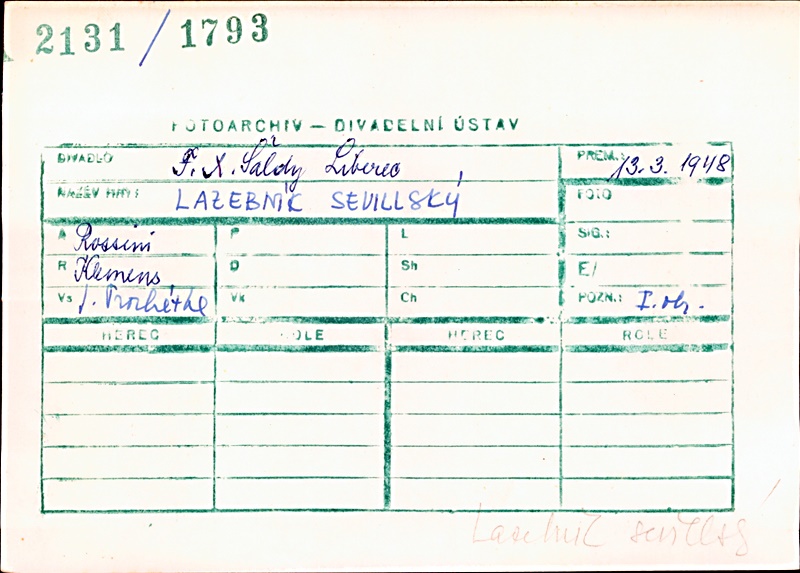 2131 / 1793
FOTOARCHIV — DIVADELNÍ ÚSTAV
DIVADLO F. X. Šaldy Liberec PREM.: 13.3.1948
NÁZEV HRY: LAZEBNÍK SEVILLSKÝ FOTO
A Rossini P L SIG.:
R Klemens D Sh E/
Vs J. Procházka Vk Ch POZN.: I. ob.
HEREC ROLE HEREC ROLE
Lazebník sevillský